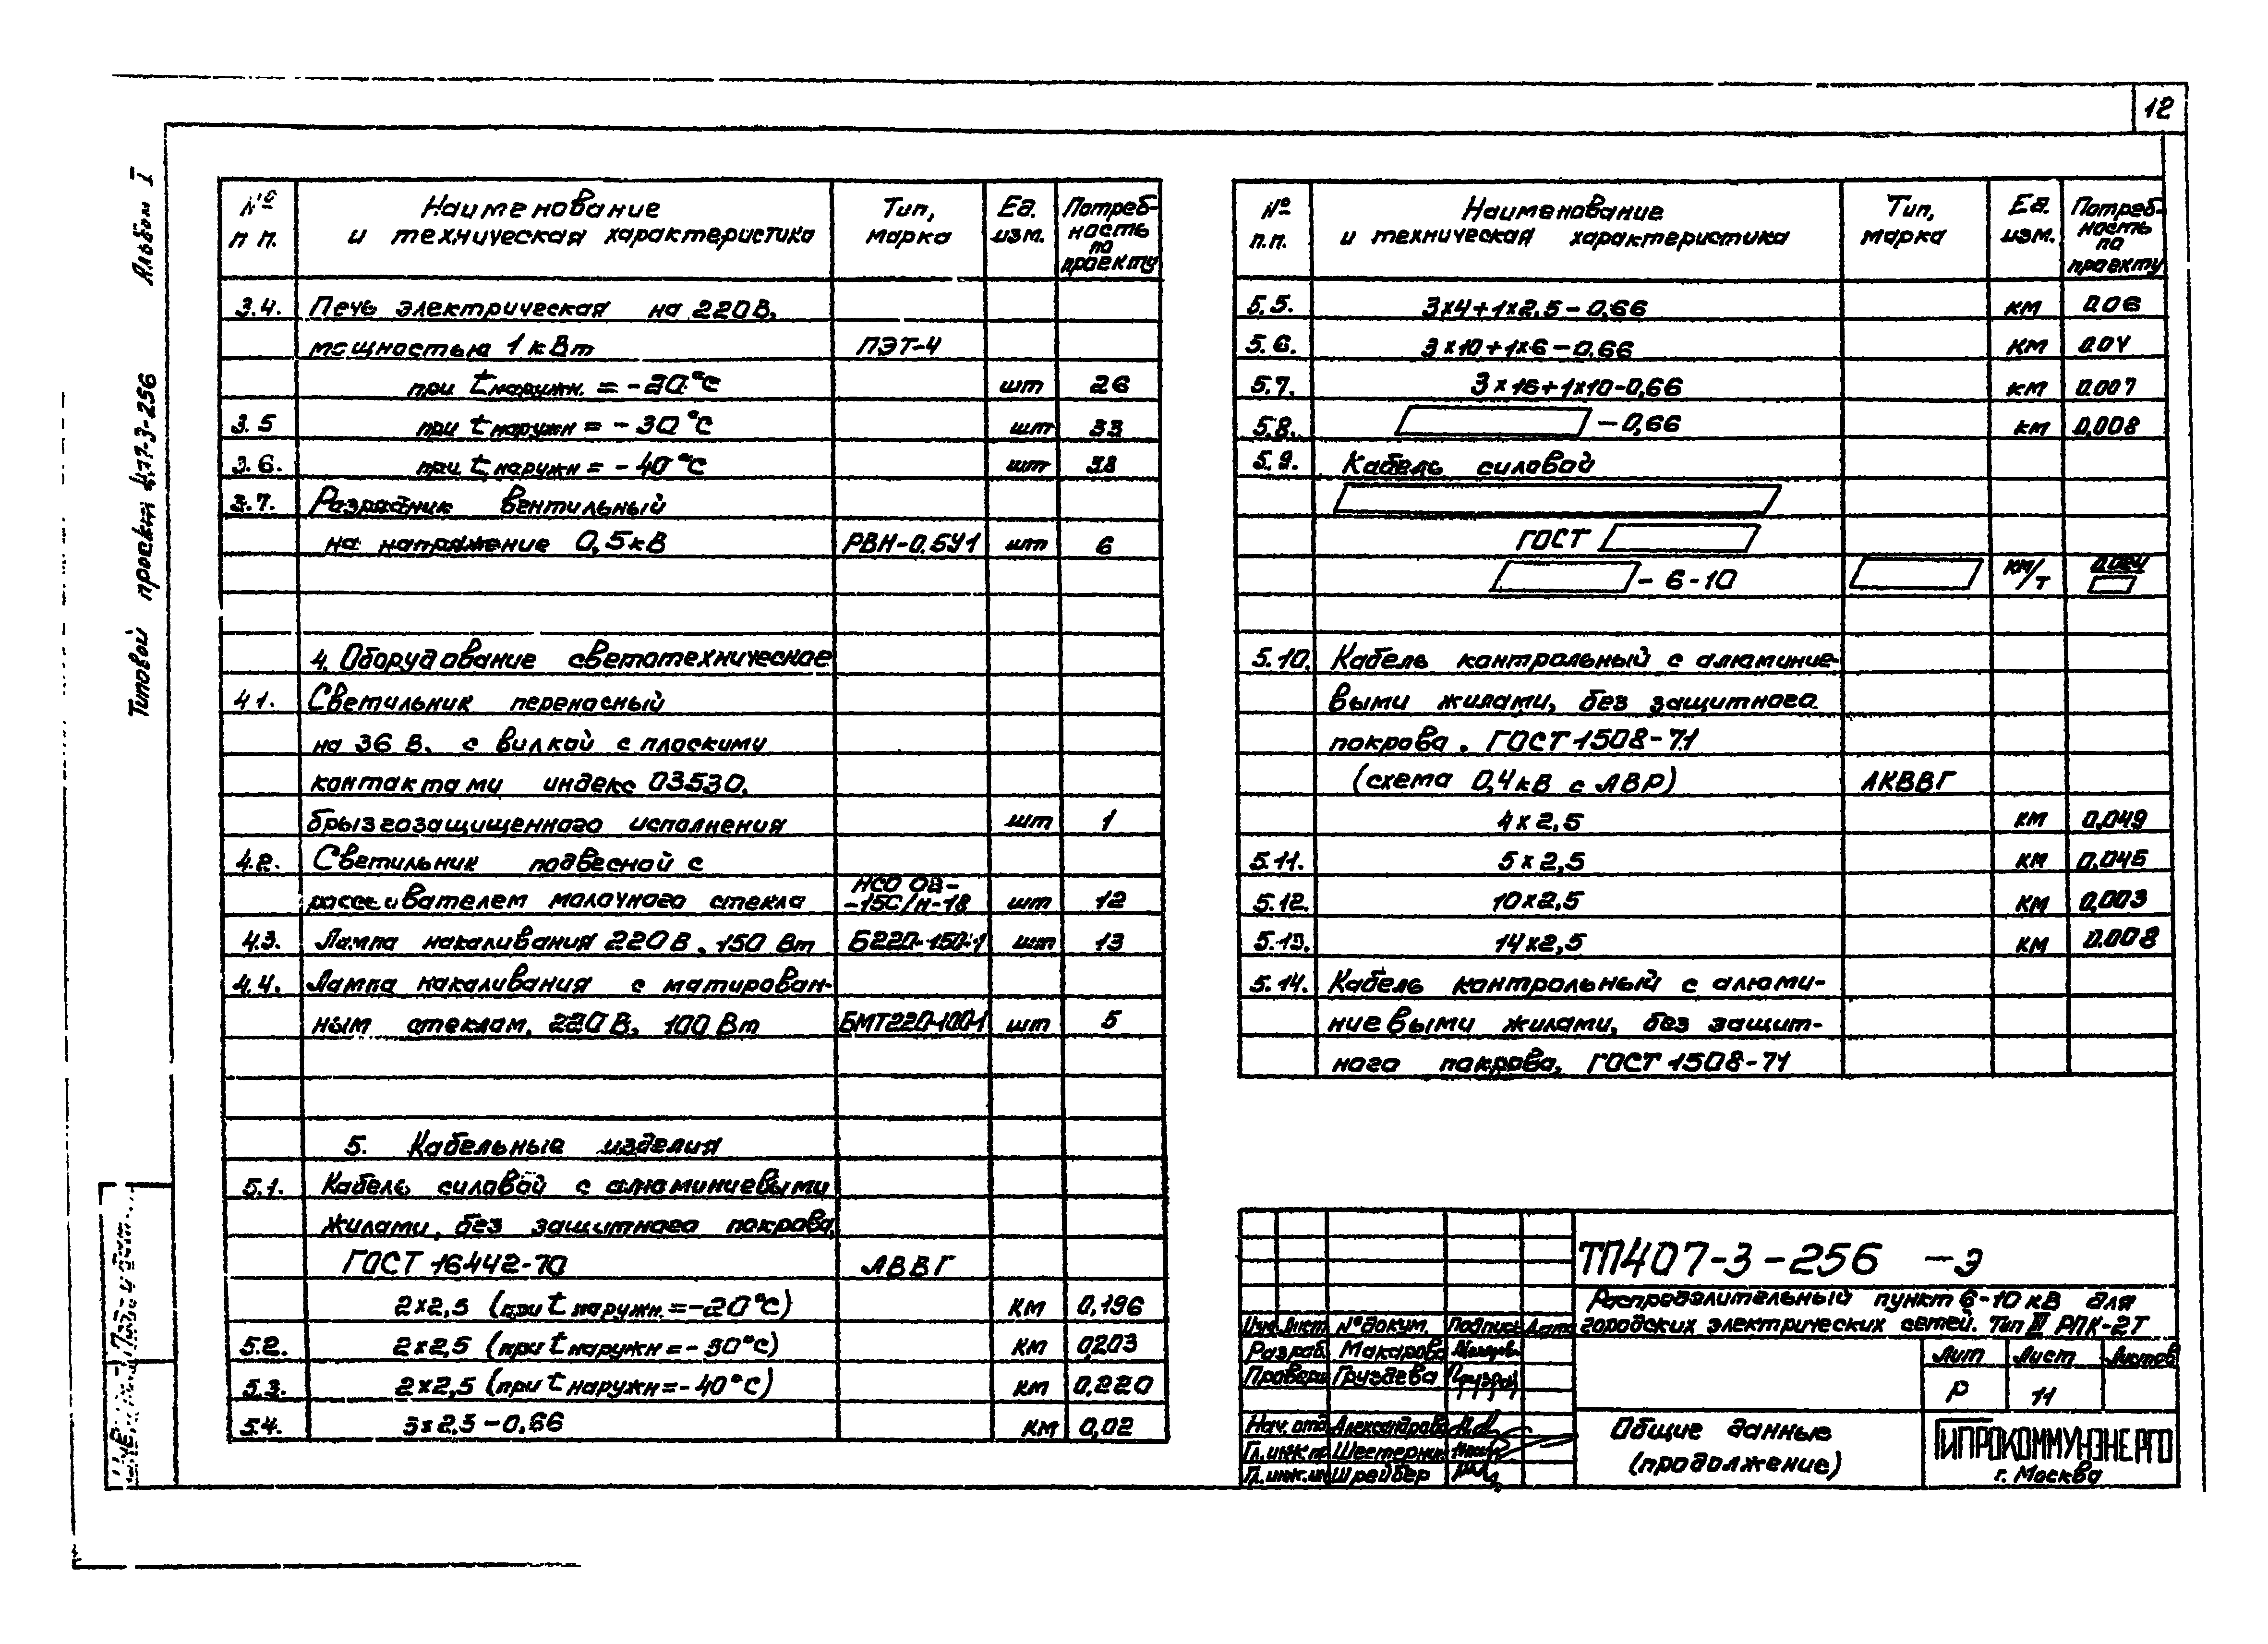 12
Альбом I
Типовой проект 407-3-256
№ п п. Наименование и техническая характеристика Тип, марка Ед. изм. Потреб-ность по проекту
3.4. Печь электрическая на 220 В,
мощностью 1 кВт ПЭТ-4
при t наружн. = -20°С шт 26
3.5 при t наружн = -30°С шт 33
3.6. при t наружн = -40°С шт 38
3.7. Разрядник вентильный
на напряжение 0,5 кВ РВН-0.5У1 шт 6
4. Оборудование светотехническое
4.1. Светильник переносный
на 36 В. с вилкой с плоскими
контактами индекс 03530,
брызгозащищенного исполнения шт 1
4.2. Светильник подвесной с
рассеивателем молочного стекла НСО 02-
-150/Н-18 шт 12
4.3. Лампа накаливания 220 В, 150 Вт Б220-150-1 шт 13
4.4. Лампа накаливания с матирован-
ным стеклом, 220 В, 100 Вт БМТ220-100-1 шт 5
5. Кабельные изделия
5.1. Кабель силовой с алюминиевыми
жилами, без защитного покрова,
ГОСТ 16442-70 АВВГ
2×2,5 (при t наружн. = -20°С) км 0,196
5.2. 2×2,5 (при t наружн = -30°С) км 0,203
5.3. 2×2,5 (при t наружн = -40°С) км 0,220
5.4. 3×2,5-0,66 км 0,02
№ п.п. Наименование и техническая характеристика Тип, марка Ед. изм. Потреб-ность по проекту
5.5. 3×4+1×2,5-0,66 км 0.06
5.6. 3×10+1×6-0.66 км 0.04
5.7. 3×16+1×10-0,66 км 0.007
5.8. -0,66 км 0,008
5.9. Кабель силовой
ГОСТ
-6-10 км/т 0.024
5.10. Кабель контрольный с алюминие-
выми жилами, без защитного
покрова. ГОСТ 1508-71
(схема 0,4 кВ с АВР) АКВВГ
4×2,5 км 0,049
5.11. 5×2,5 км 0,045
5.12. 10×2,5 км 0,003
5.13. 14×2,5 км 0.008
5.14. Кабель контрольный с алюми-
ниевыми жилами, без защит-
ного покрова, ГОСТ 1508-71
ТП407-3-256 -Э
Распределительный пункт 6-10 кВ для
городских электрических сетей. Тип III РПК-2Т
Лист № докум. Подпись Дата
Разраб. Макарова
Провери Груздева
Нач. отд Александрова
Гл. инж. пр Шестерник
Гл. инж. ин Шрейбер
Лит Лист Листов
Р 11
Общие данные
(продолжение)
ГИПРОКОММУНЭНЕРГО
г. Москва